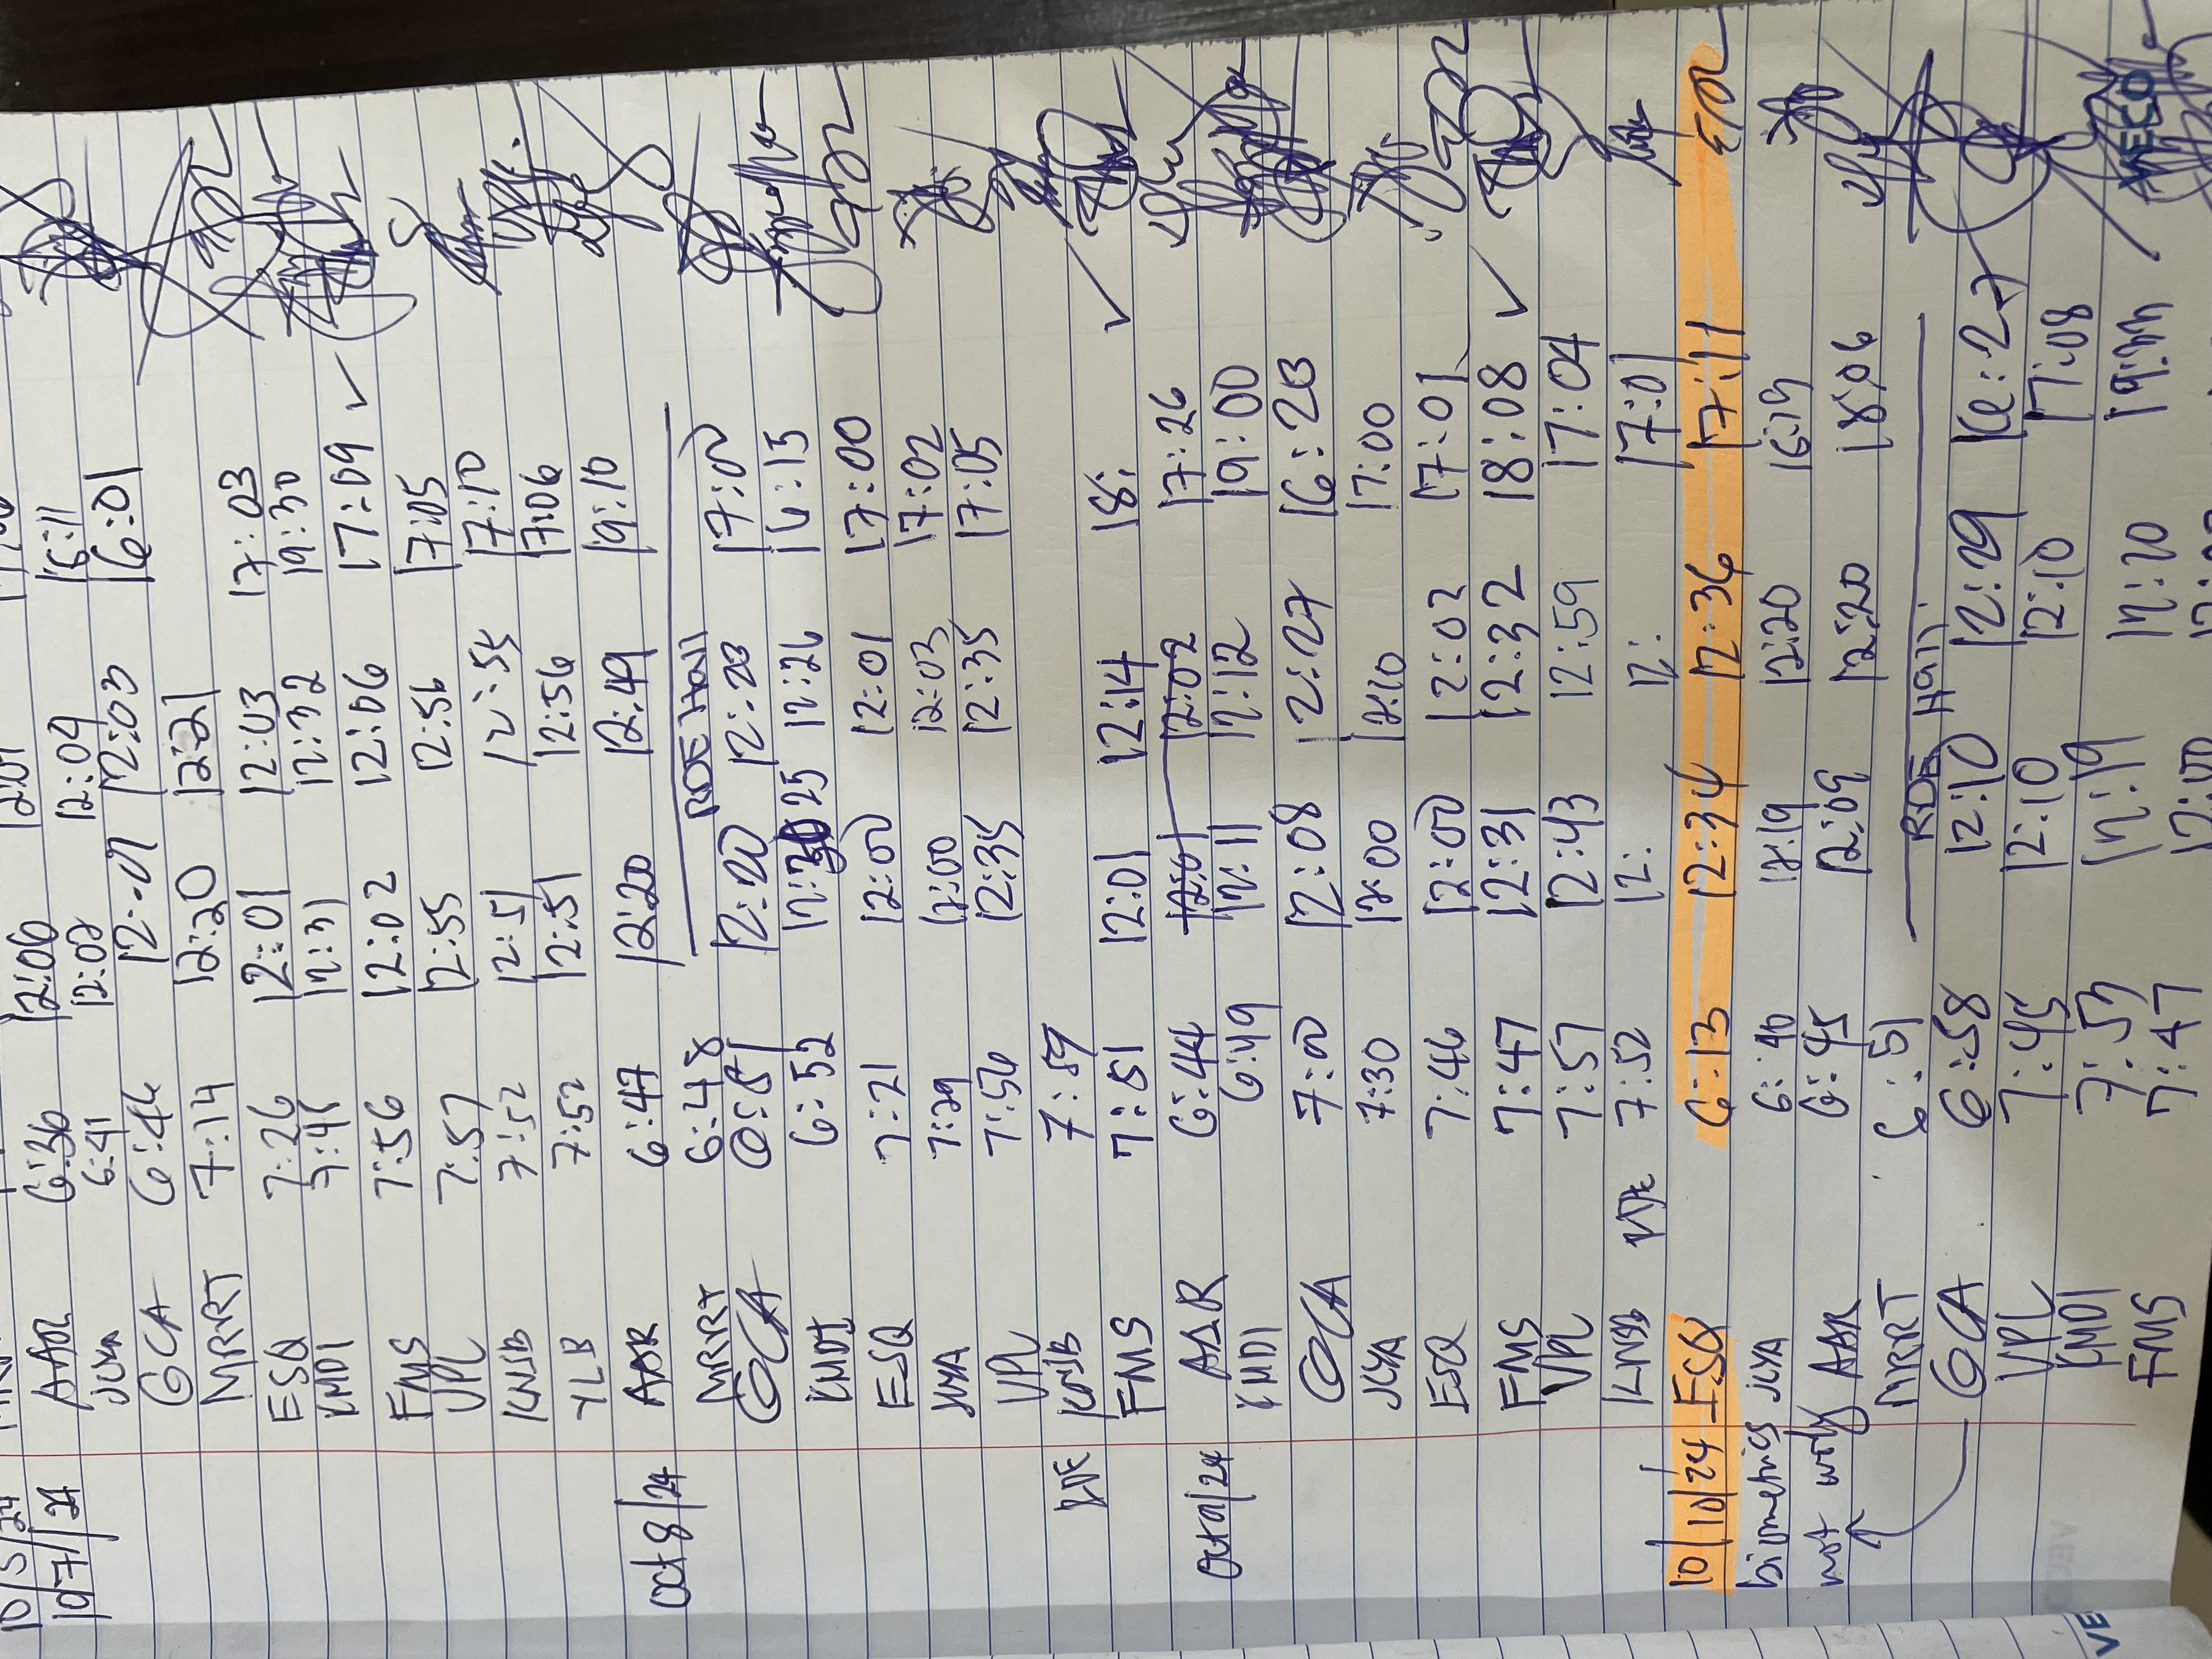 10/5/24
10/7/24 AAR 6:36 12:06 12:07
JLYA 6:41 12:02 12:04 16:11
GCA 6:44 12:01 12:03 16:01
MRRT 7:14 12:20 12:21
ESQ 7:26 12:01 12:03 17:03
KMDI 12:31 12:32 19:30
FMS 7:56 12:02 12:06 17:09 ✓
VPL 7:57 12:55 12:56 17:05
KNSB 7:52 12:51 12:55 17:10
YLB 7:52 12:51 12:56 17:06
Oct 8/24 AAR 6:47 12:20 12:49 19:10
MRRT 6:48 RDE Hall
GCA 6:51 12:00 12:23 17:00
KMDI 6:52 12:25 12:26 16:15
ESQ 7:21 12:00 12:01 17:00
JLYA 7:29 12:00 12:03 17:02
VPL 7:56 12:35 12:35 17:05
RDE KNSB 7:59
FMS 7:51 12:01 12:14 18: ✓
Oct 9/24 AAR 6:44 12:01 12:02 17:26
KMDI 6:49 12:11 12:12 19:00
GCA 7:00 12:08 12:27 16:23
JLYA 7:30 12:00 12:10 17:00
ESQ 7:46 12:00 12:02 17:01
FMS 7:47 12:31 12:32 18:08 ✓
VPL 7:57 12:43 12:59 17:04
KNSB RDE 7:52 12: 12: 17:01
10/10/24 ESQ 6:13 12:34 12:36 17:11
biometrics JLYA 6:40 12:19 12:20 16:19
not working AAR 6:45 12:09 12:20 18:06
MRRT 6:51 RDE Hall
GCA 6:58 12:10 12:29 16:27
VPL 7:45 12:10 12:10 17:08
KMDI 7:53 12:19 12:20 19:
FMS 7:47 12:00
VECO